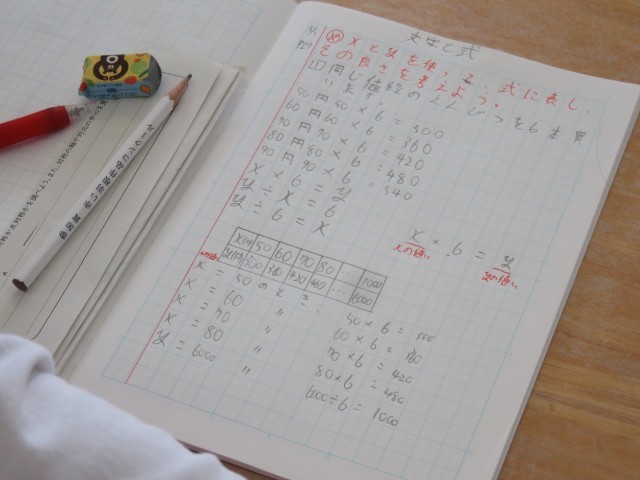 文字と式
め xとyを使って、式に表し、
その良さを考えよう。
(1) 同じ値段のえんぴつを6本買
います。
50円 50×6=300
60円 60×6=360
70円 70×6=420
80円 80×6=480
90円 90×6=540
x×6=y
y÷x=6
y÷6=x
x×6=y
xの値 yの値
x(円) 50 60 70 80 … 1000
y(円) 300 360 420 480 … 6000
x=50のとき、 50×6=300
x=60 〃 60×6=360
x=70 〃 70×6=420
x=80 〃 80×6=480
y=6000 〃 6000÷6=1000